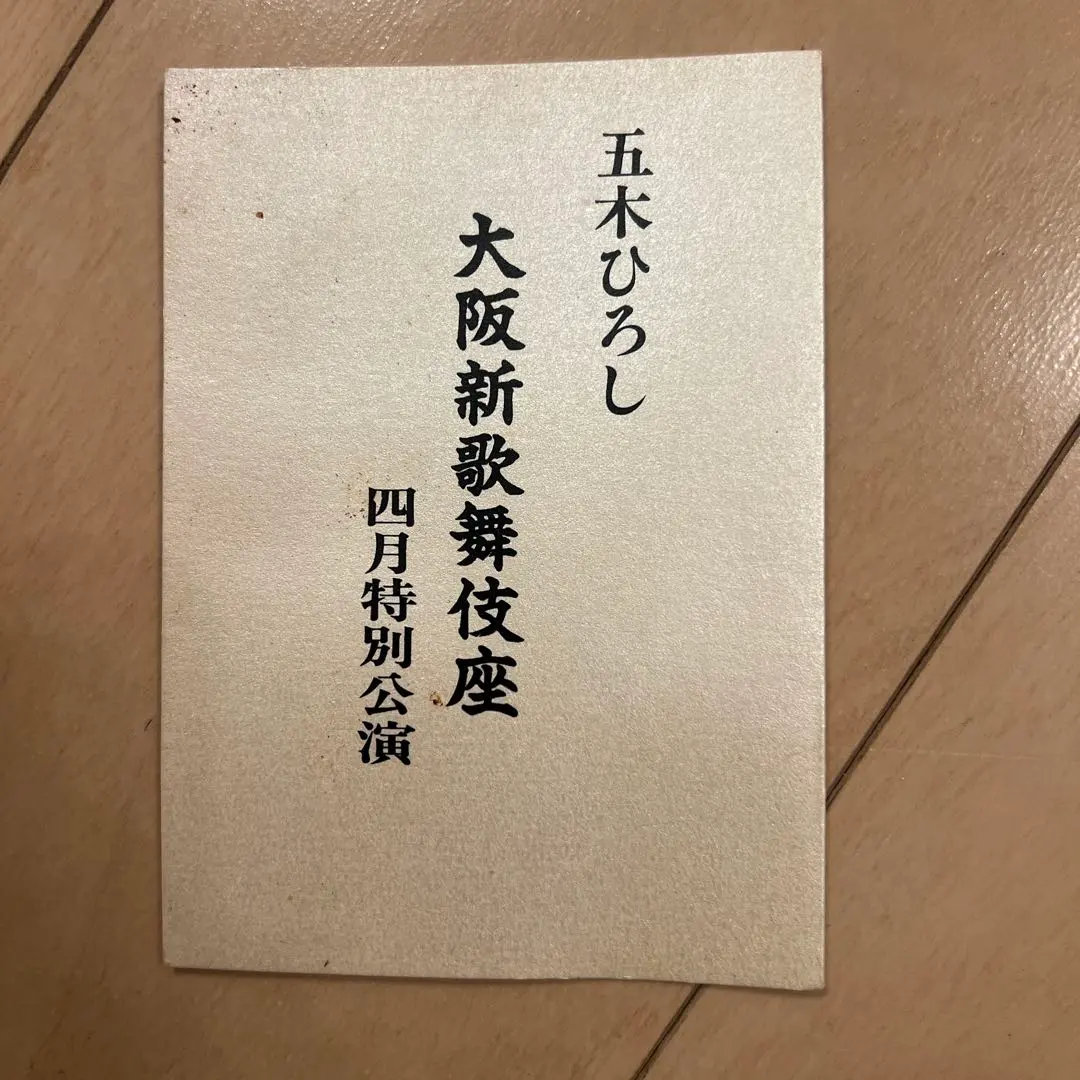 五木ひろし
大阪新歌舞伎座
四月特別公演